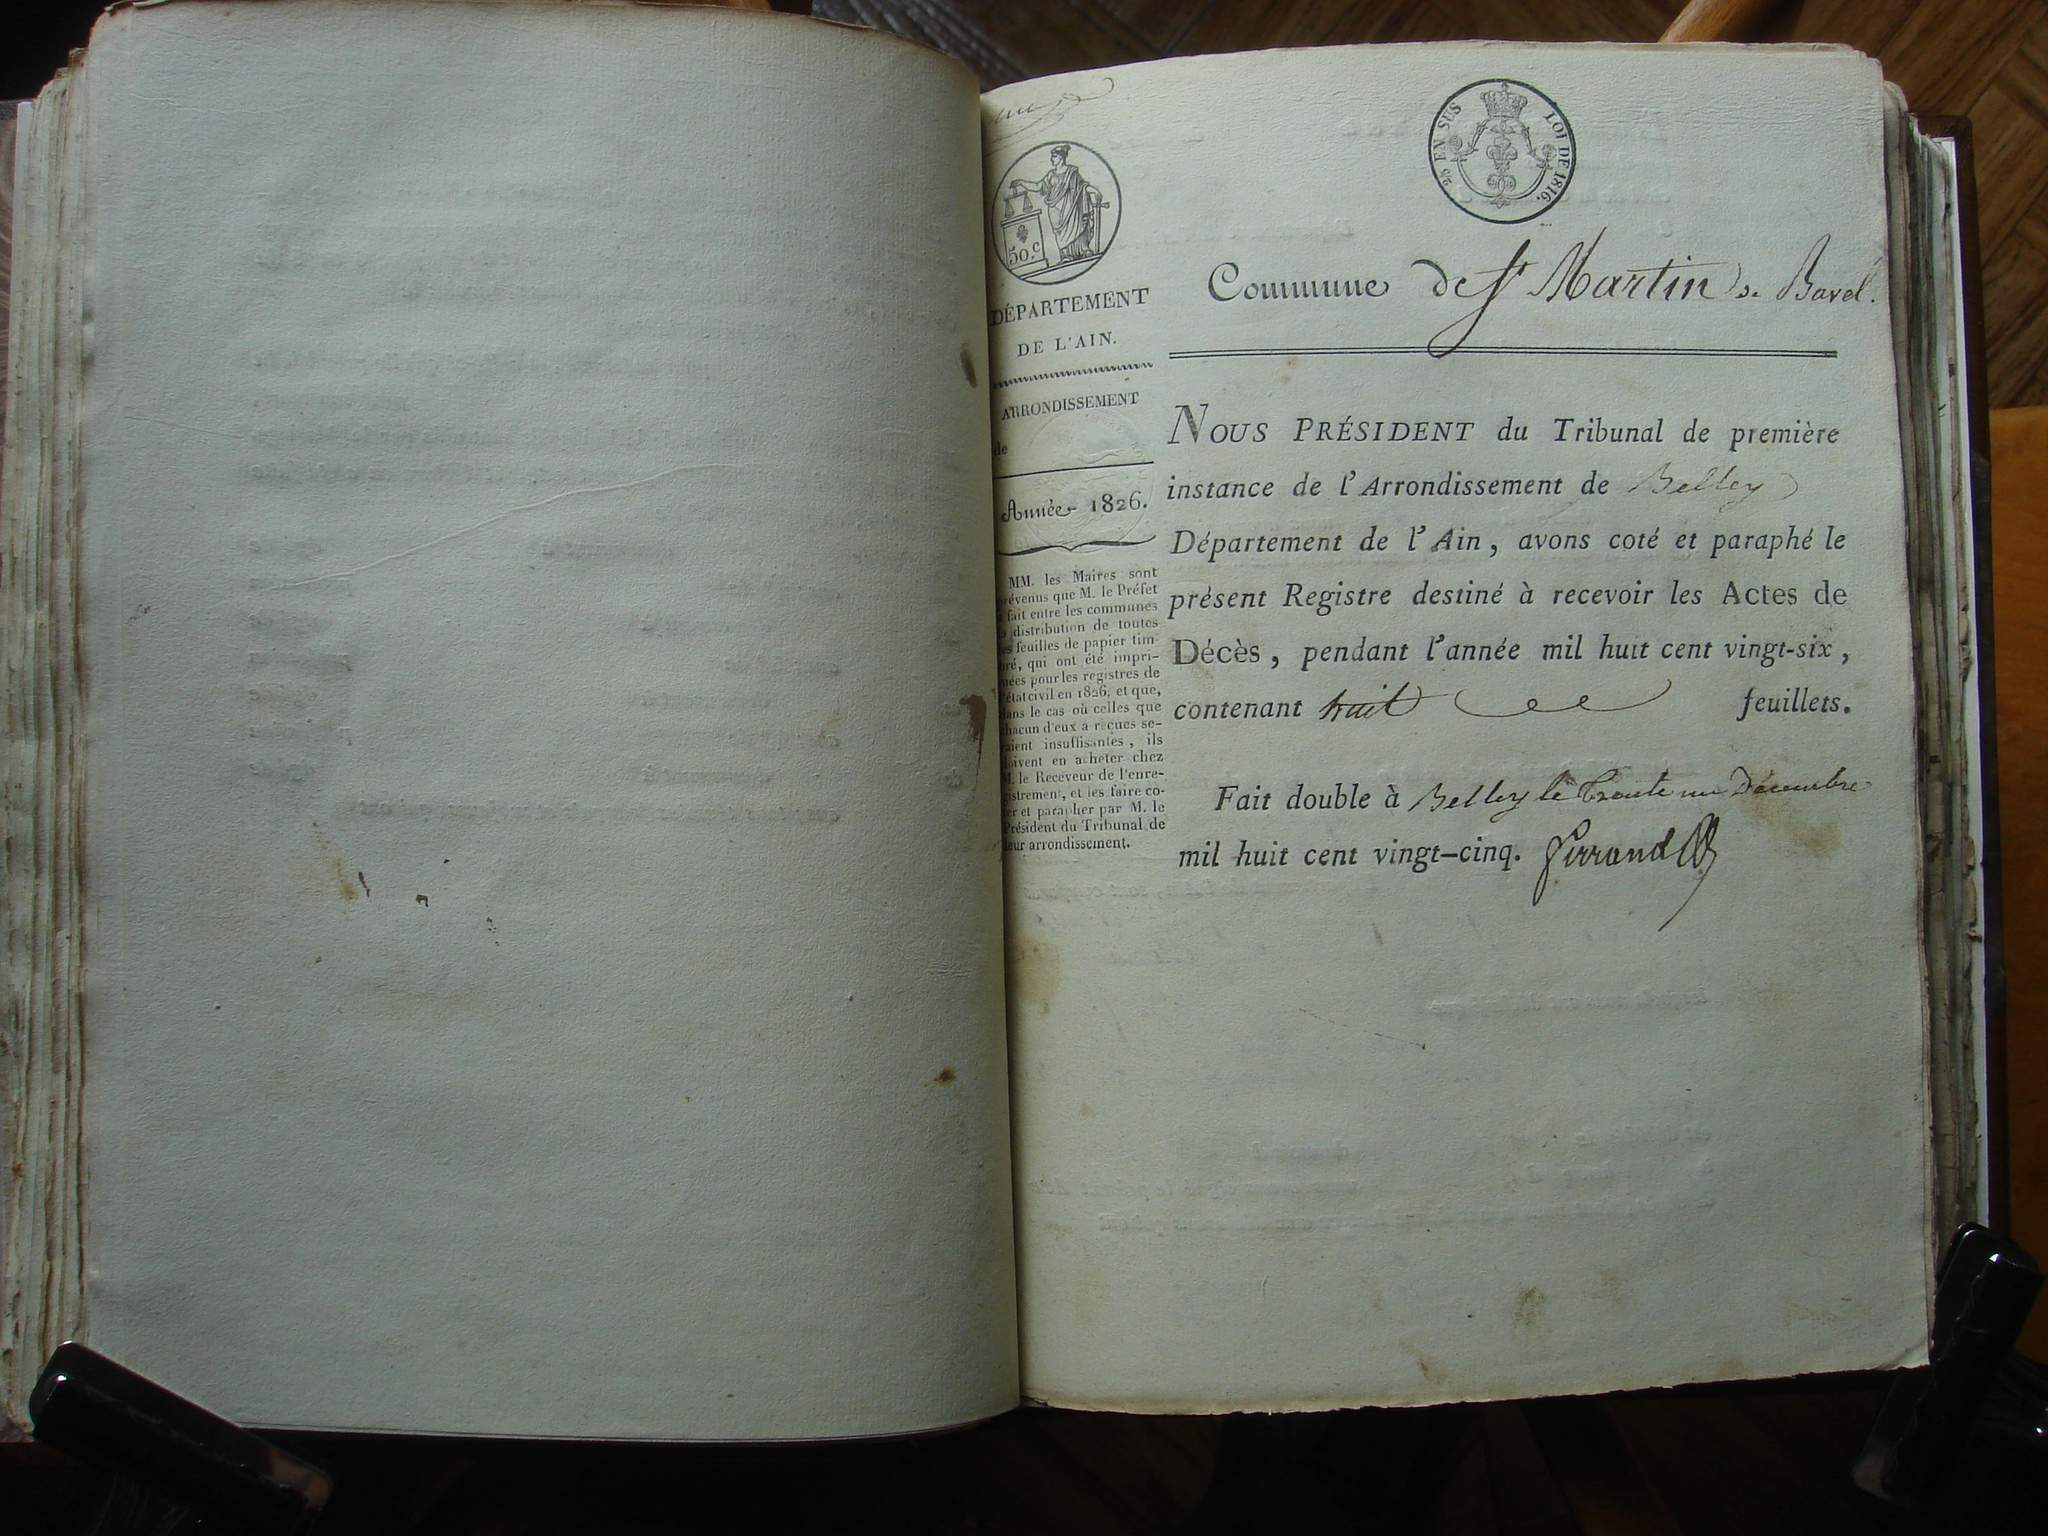 25 EN SUS LOI DE 1816.
50.c
DÉPARTEMENT
DE L'AIN.
ARRONDISSEMENT
de
Année 1826.
MM. les Maires sont
prévenus que M. le Préfet
fait entre les communes
distribution de toutes
feuilles de papier tim-
bré, qui ont été impri-
mées pour les registres de
l'état civil en 1826, et que,
dans le cas où celles que
chacun d'eux a reçues se-
raient insuffisantes, ils
doivent en acheter chez
M. le Receveur de l'enre-
gistrement, et les faire co-
ter et parapher par M. le
Président du Tribunal de
leur arrondissement.
Commune de St Martin de Bavel.
NOUS PRÉSIDENT du Tribunal de première
instance de l'Arrondissement de Belley
Département de l'Ain, avons coté et paraphé le
présent Registre destiné à recevoir les Actes de
Décès, pendant l'année mil huit cent vingt-six,
contenant huit feuillets.
Fait double à Belley le Trente un Décembre
mil huit cent vingt-cinq.